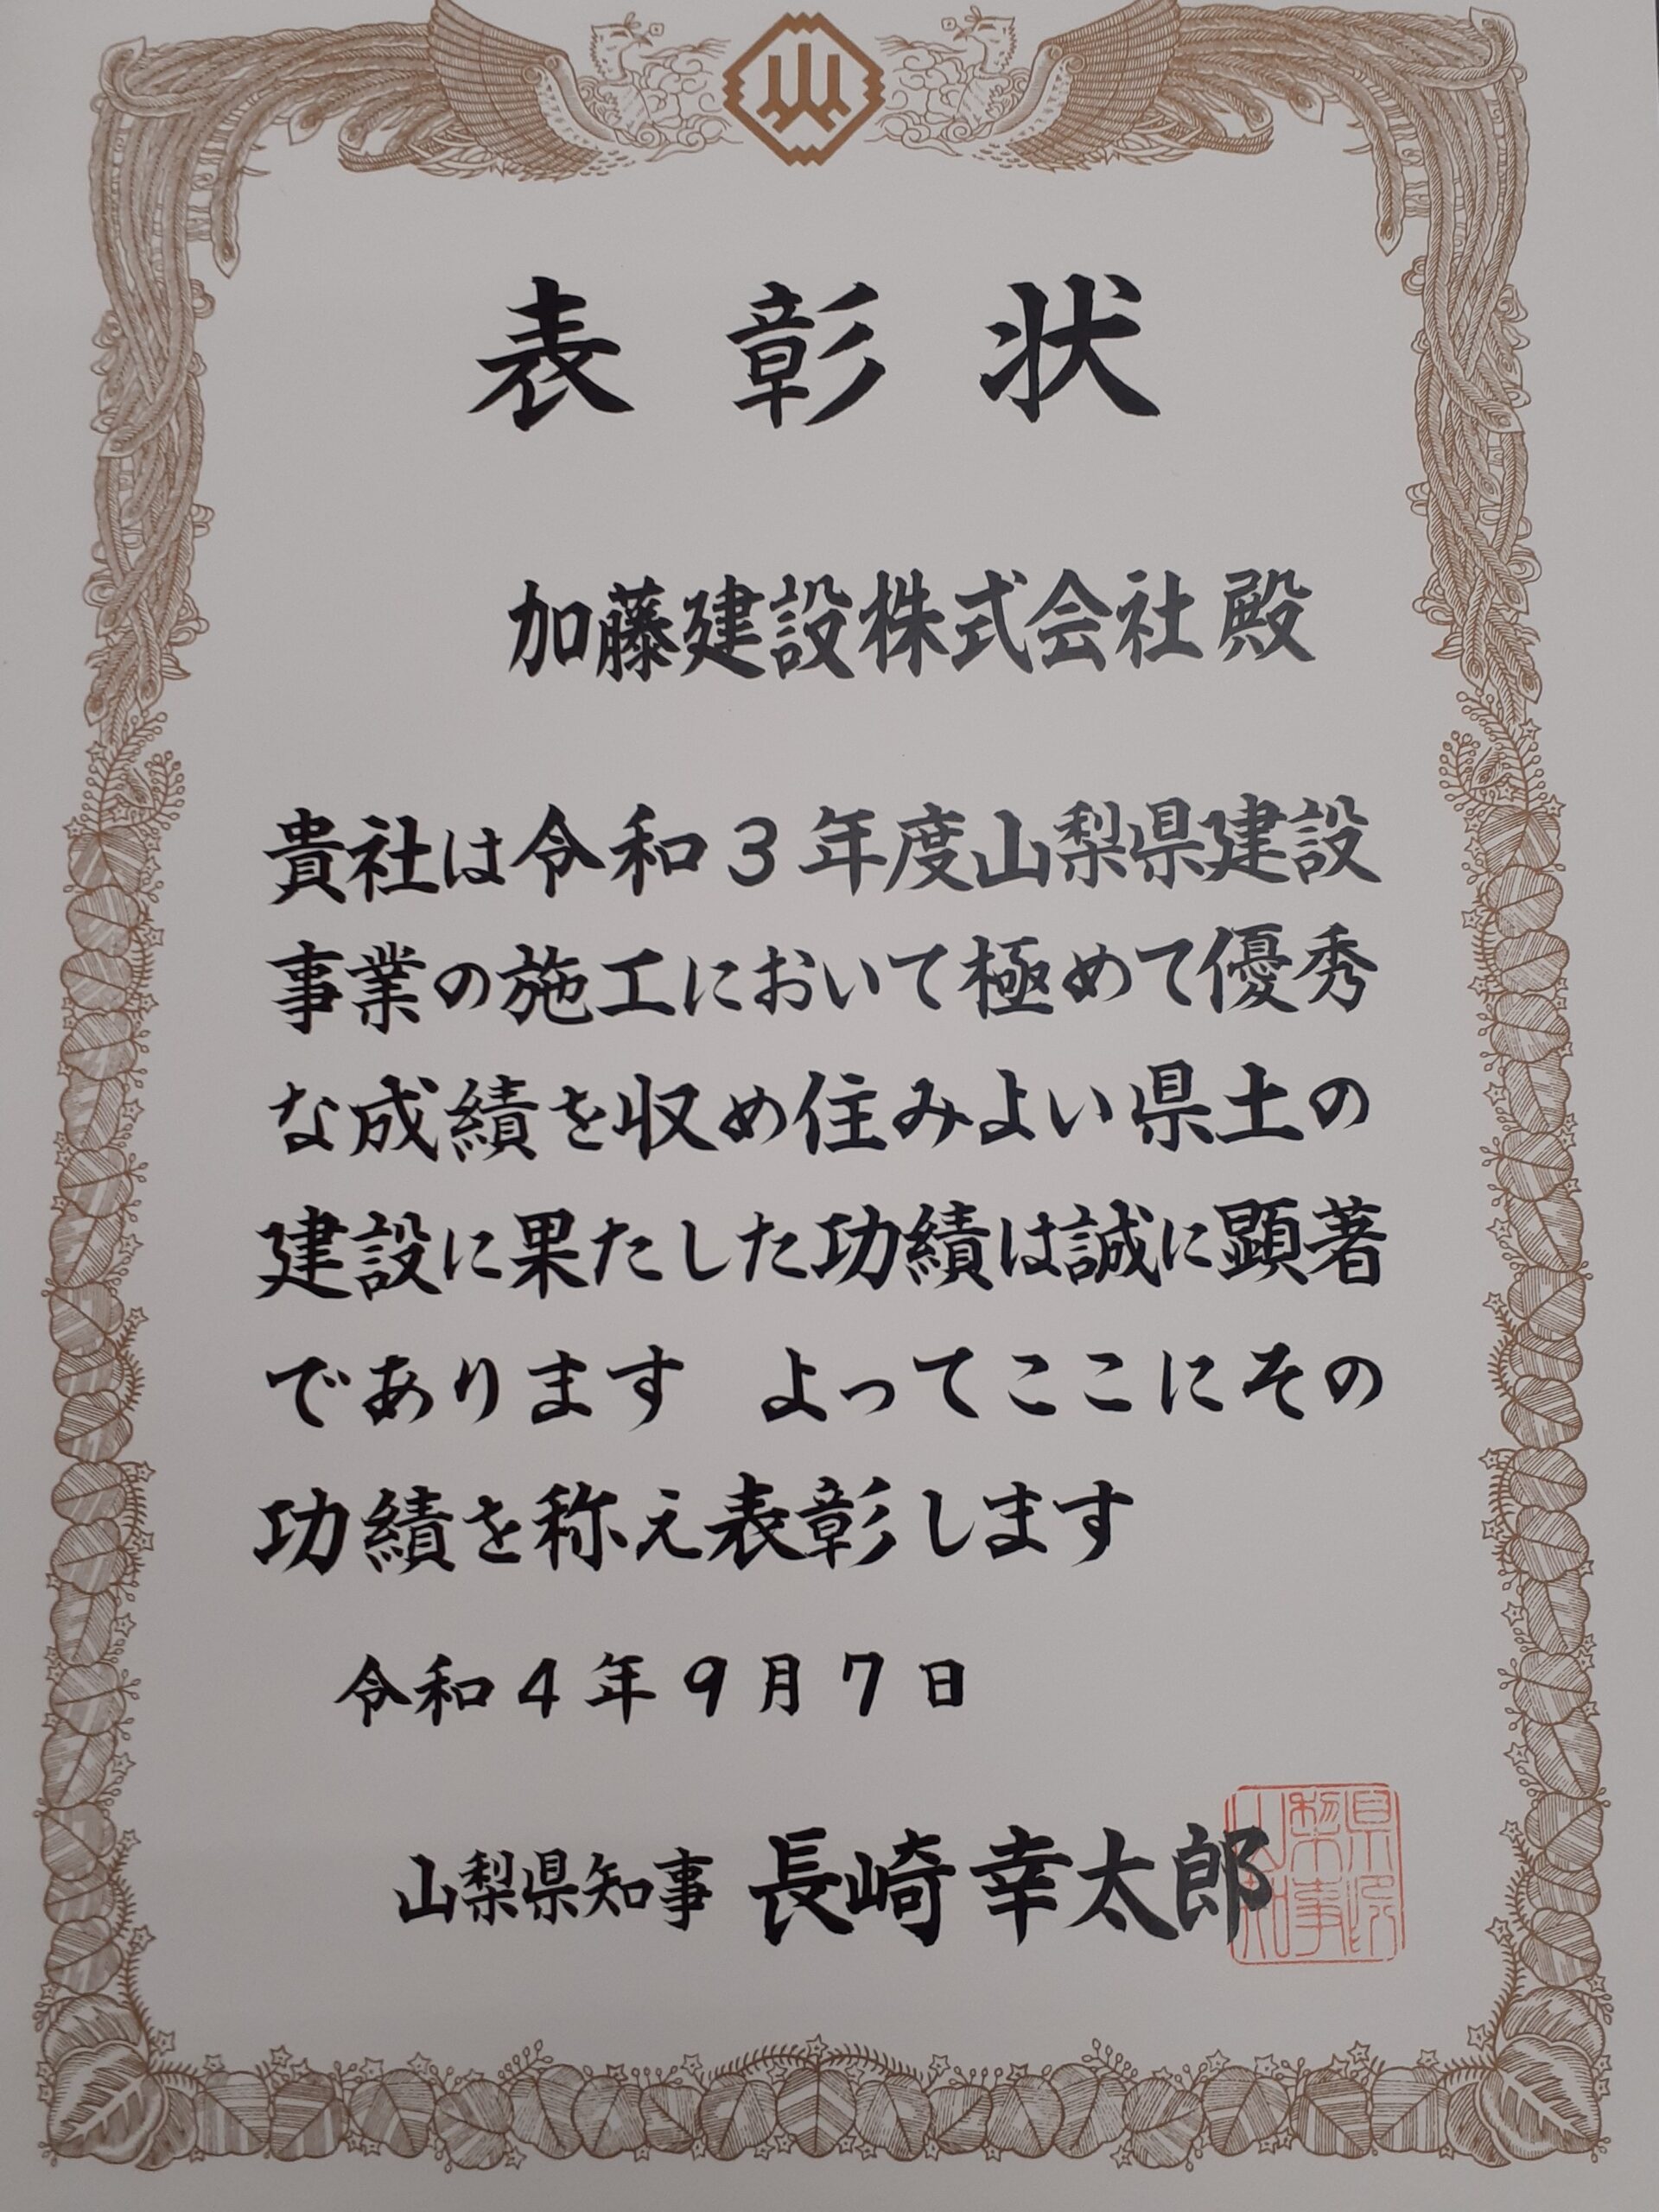 表彰状
加藤建設株式会社 殿
貴社は令和3年度山梨県建設
事業の施工において極めて優秀
な成績を収め住みよい県土の
建設に果たした功績は誠に顕著
であります よってここにその
功績を称え表彰します
令和4年9月7日
山梨県知事 長崎幸太郎